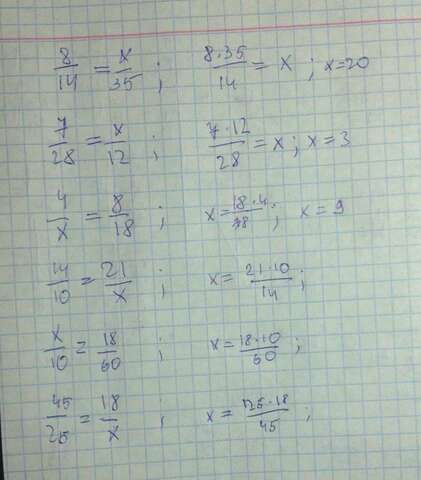 8/14 = x/35 ; 8·35/14 = x ; x=20
7/28 = x/12 ; 7·12/28 = x ; x=3
4/x = 8/18 ; x = 18·4/8 ; x = 9
14/10 = 21/x ; x = 21·10/14 ;
x/10 = 18/60 ; x = 18·10/60 ;
45/25 = 18/x ; x = 25·18/45 ;